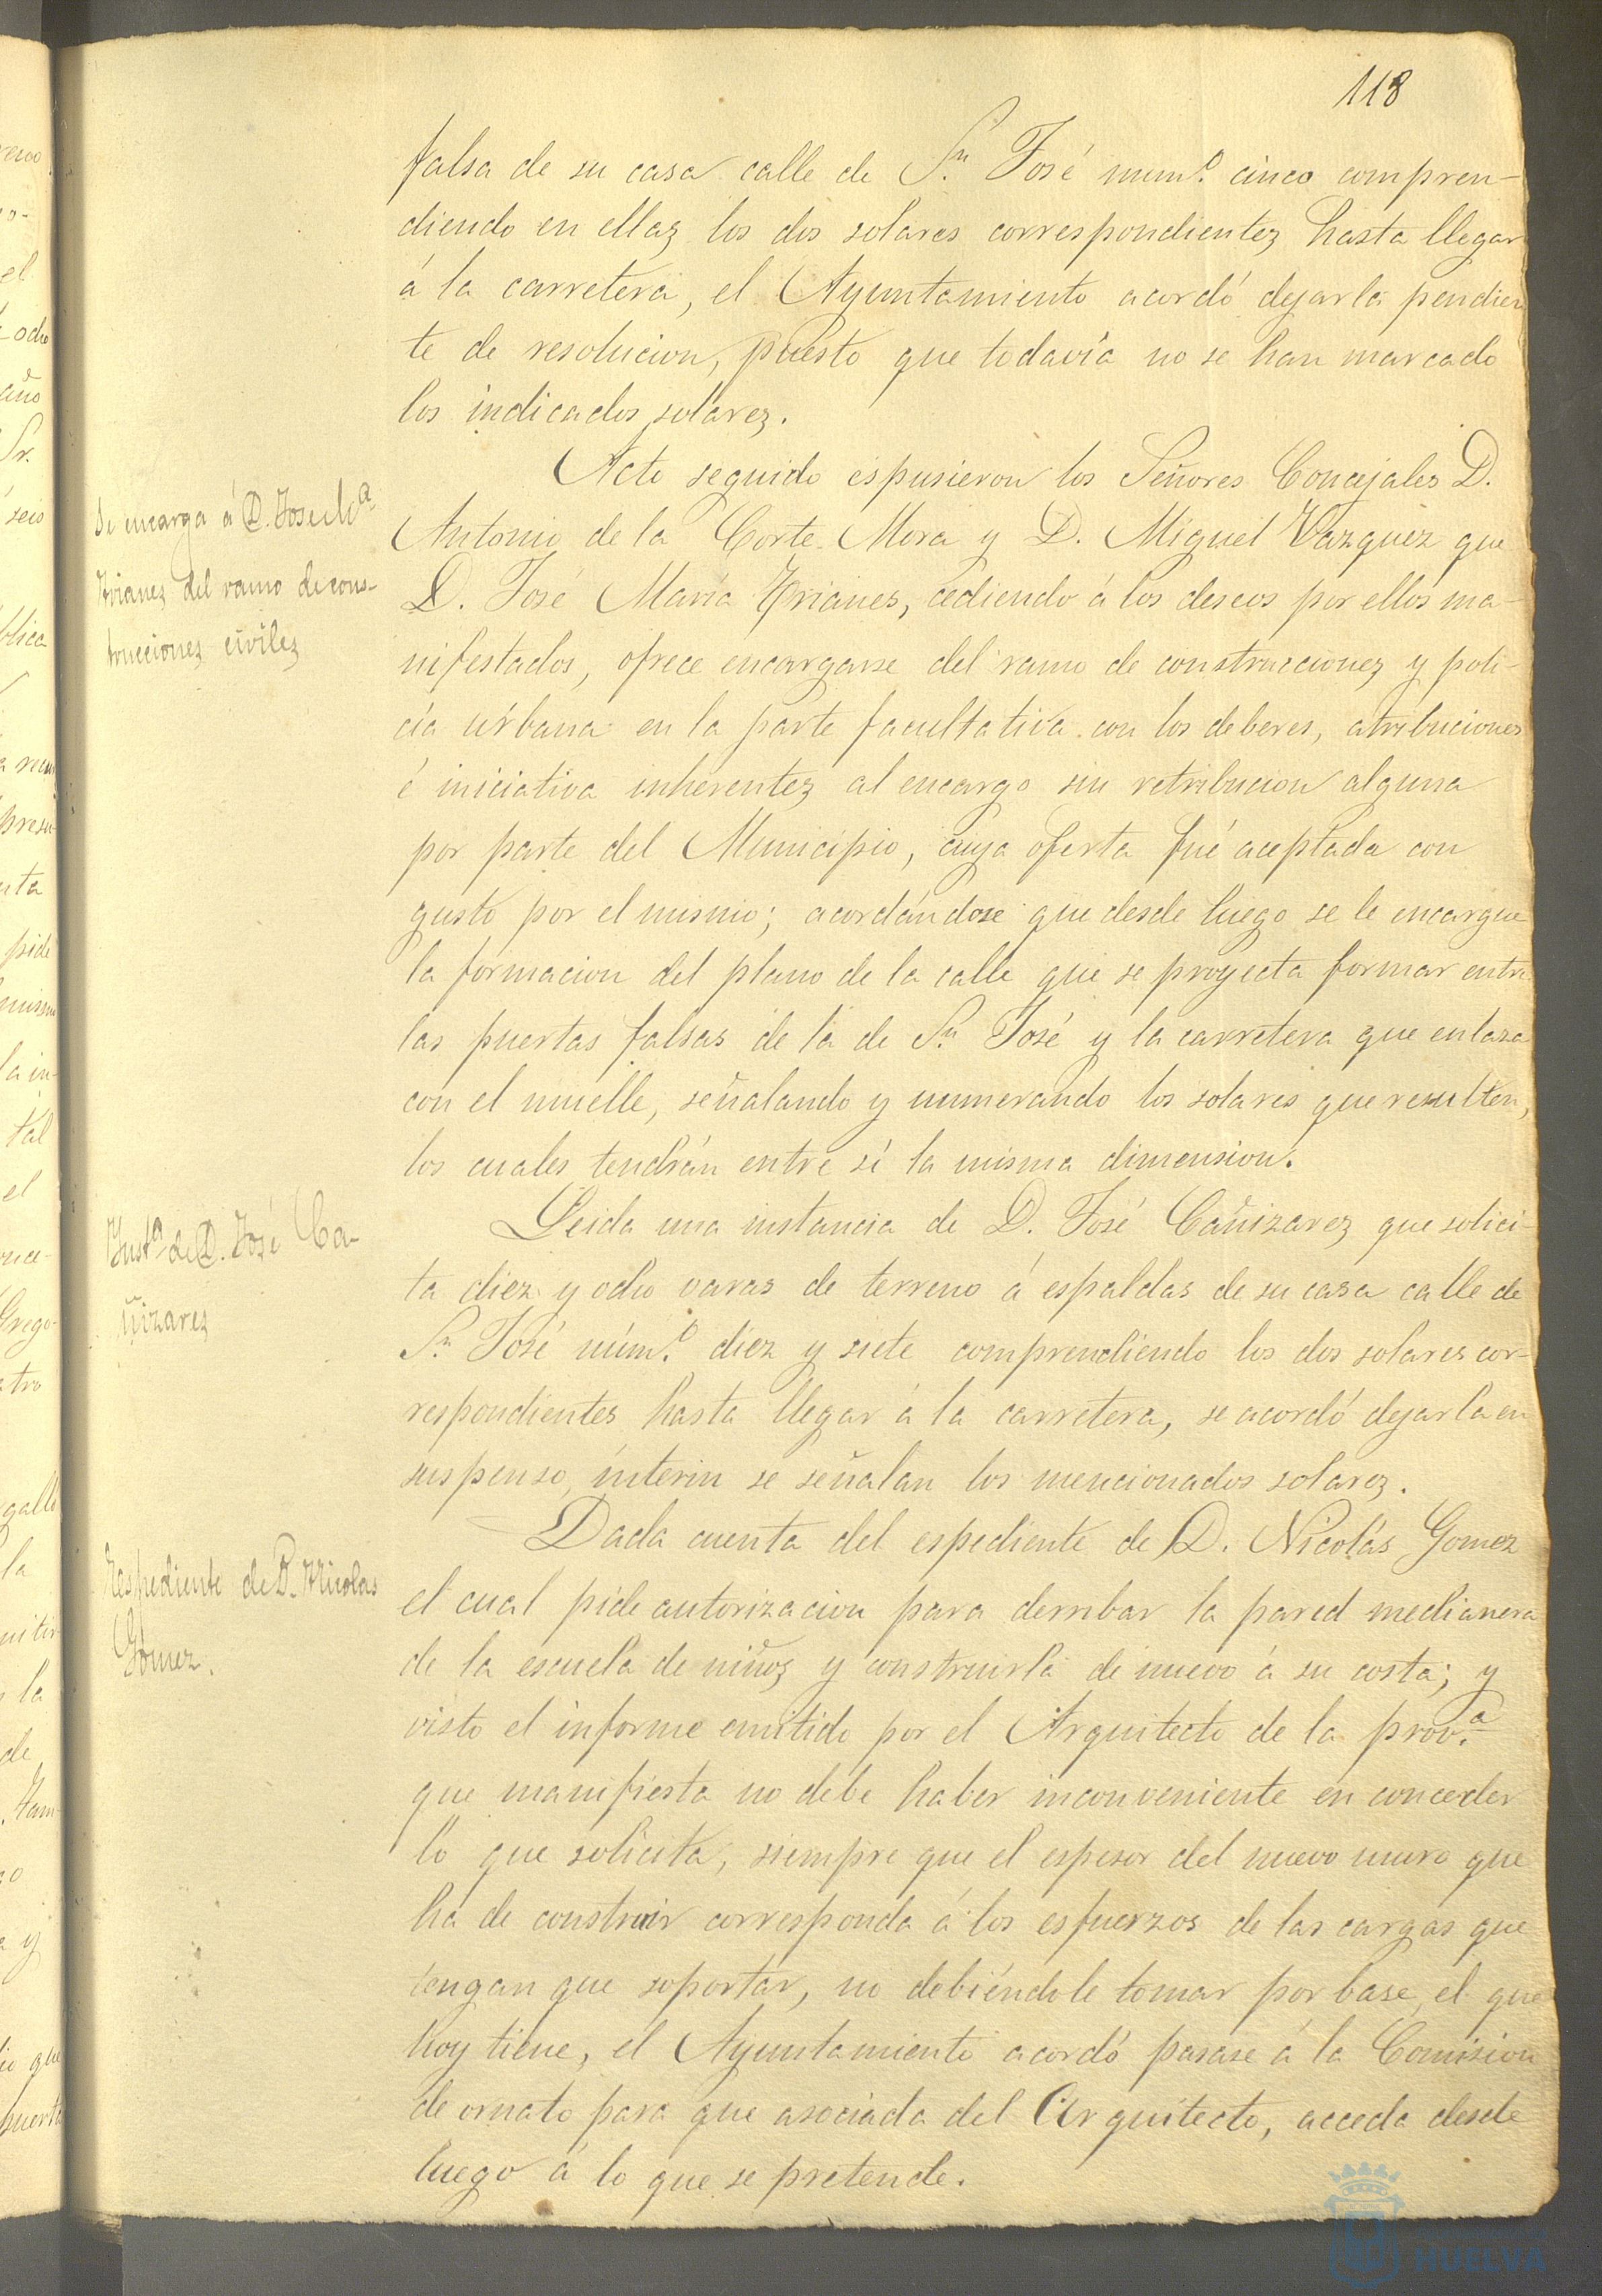 118
falsa de su casa calle de Sn. José num.º cinco compren-
diendo en ellaz los dos solares correspondientez hasta llegar
á la carretera, el Ayuntamiento acordó dejarla pendien
te de resolucion, puesto que todavía no se han marcado
los indicados solarez.
Acto seguido espusieron los Señores Concejales D.
Antonio de la Corte Mora y D. Miguel Vazquez que
D. José María Trianes, cediendo á los deseos por ellos ma-
nifestados, ofrece encargarse del ramo de construccionez y poli-
cía urbana en la parte facultativa con los deberes, atribuciones
é iniciativa inherentez al encargo sin retribucion alguna
por parte del Municipio, cuya oferta fué aceptada con
gusto por el mismo; acordándose que desde luego se le encargue
la formacion del plano de la calle que se proyecta formar entre
las puertas falsas de la de Sn. José y la carretera que enlaza
con el muelle, señalando y numerando los solares que resulten,
los cuales tendrán entre sí la misma dimension.
Leida una instancia de D. José Cañizarez que solici-
ta diez y ocho varas de terreno á espaldas de su casa calle de
Sn. José núm.º diez y siete comprendiendo los dos solares cor-
respondientes hasta llegar á la carretera, se acordó dejarla en
suspenso, ínterin se señalan los mencionados solarez.
Dada cuenta del espediente de D. Nicolás Gomez
el cual pide autorizacion para derribar la pared medianera
de la escuela de niñoz y construirla de nuevo á su costa; y
visto el informe emitido por el Arquitecto de la prov.ª
que manifiesta no debe haber inconveniente en conceder
lo que solicita, siempre que el espesor del nuevo muro que
há de construir corresponda á los esfuerzos de las cargas que
tengan que soportar, no debiéndole tomar por base, el que
hoy tiene, el Ayuntamiento acordó pasase á la Comision
de ornato para que asociada del Arquitecto, acceda desde
luego á lo que se pretende.
Se encarga á D. José M.ª
Trianez del ramo de cons-
trucciones civilez
Inst.ª de D. José Ca-
ñizarez
Espediente de D. Nicolas
Gomez.
HUELVA